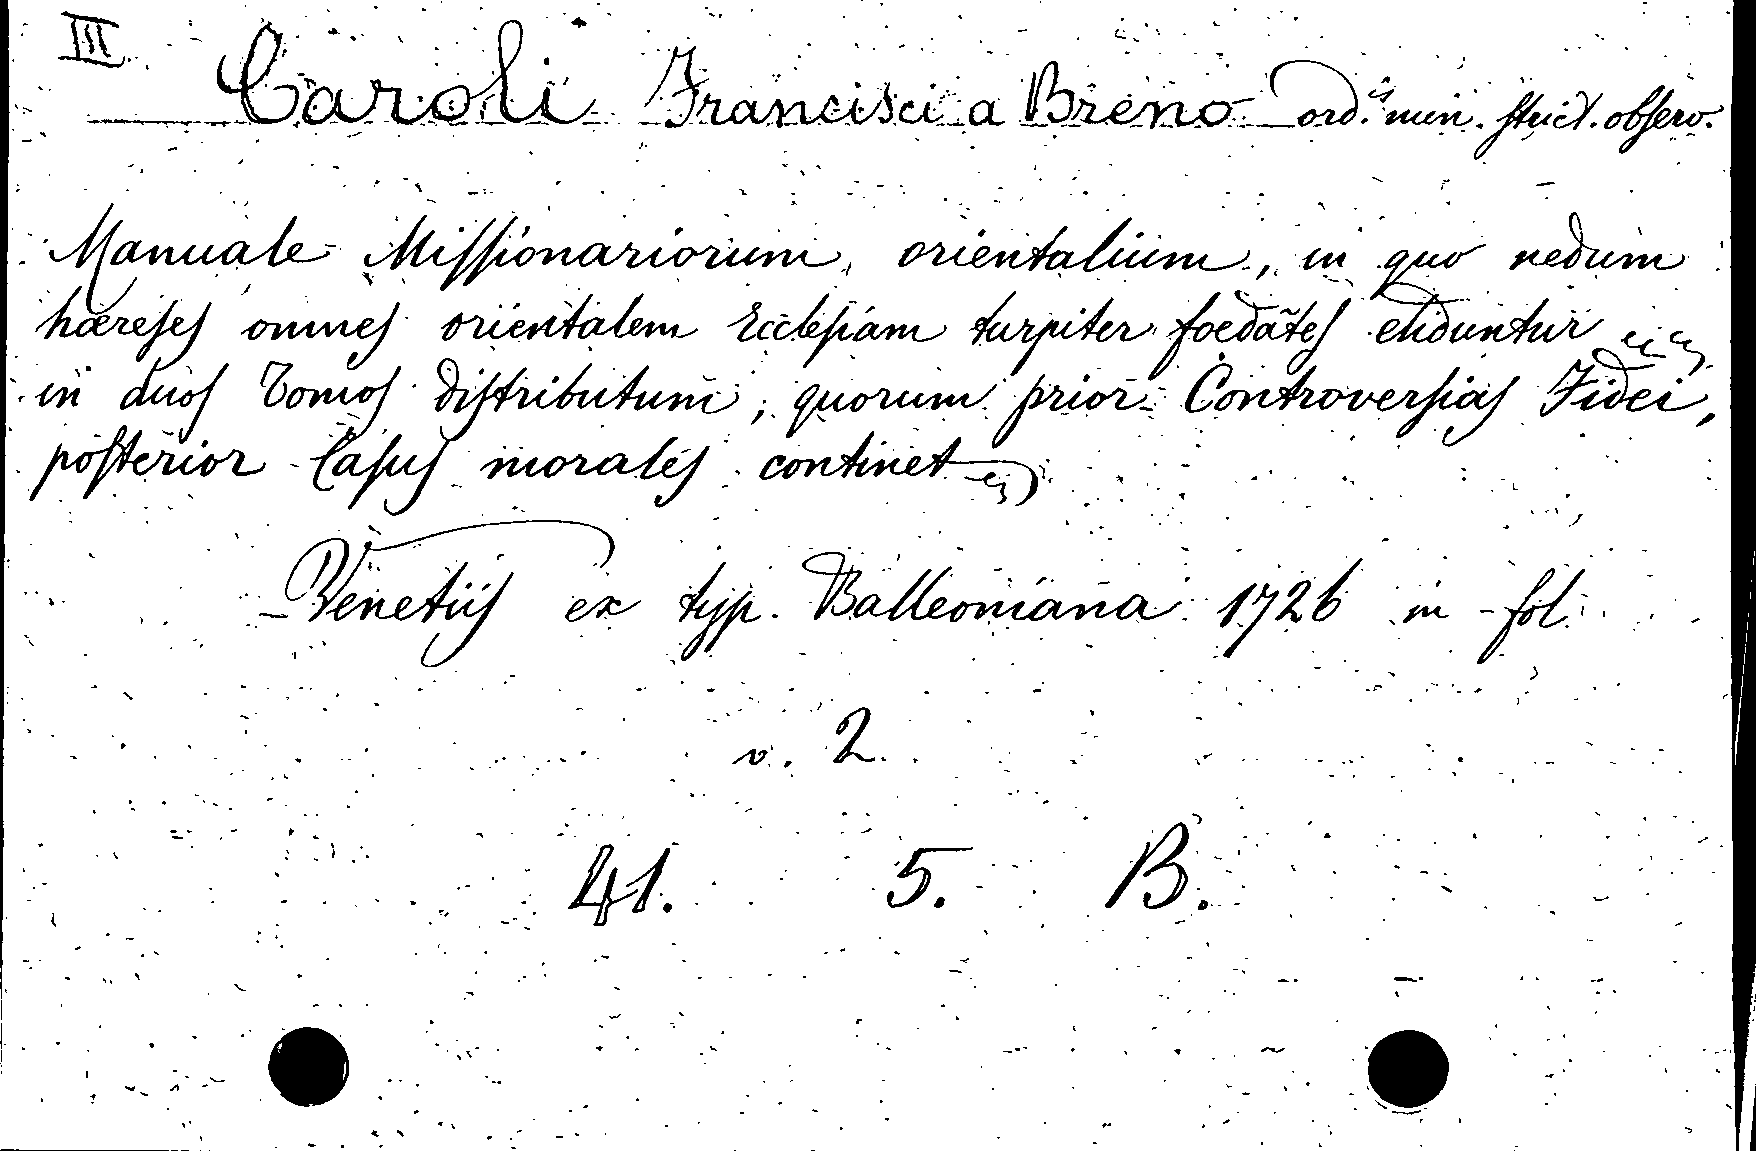 III
Caroli Francisci a Breno ord.is min. strict. observ.
Manuale Missionariorum orientalium, in quo nedum
hæreses omnes orientalem Ecclesiam turpiter foedātes eliduntur
in duos Tomos distributum, quorum prior Controversias Fidei,
posterior Casus morales continet
Venetiis ex typ. Balleoniana 1726 in fol.
v. 2.
41. 5. B.